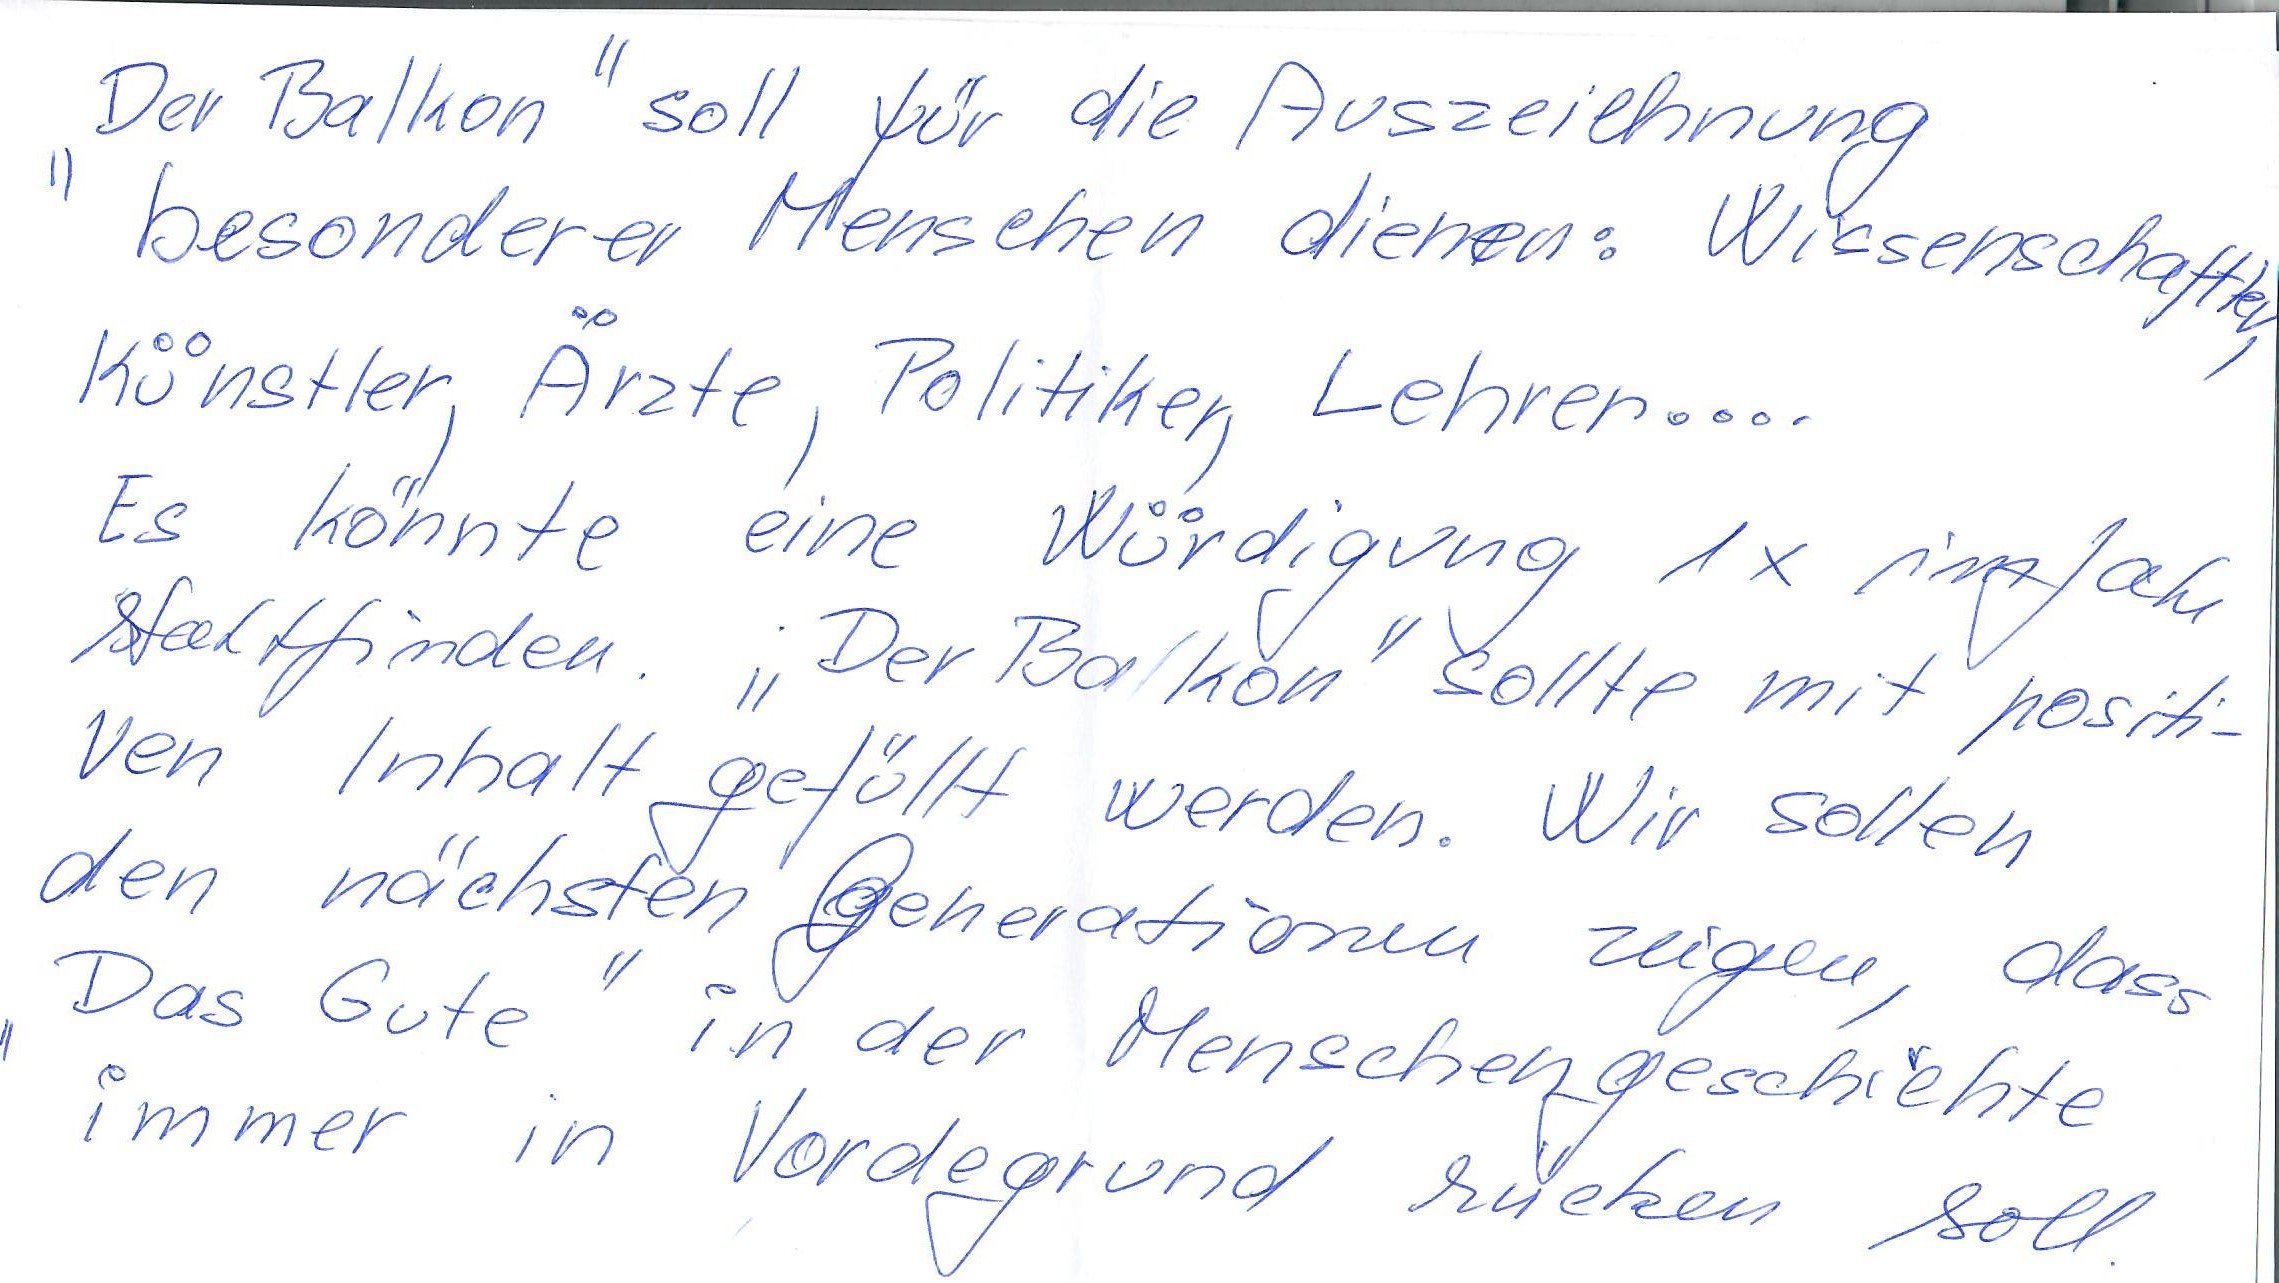 „Der Balkon" soll für die Auszeichnung
besonderer Menschen dienen: Wissenschaftler,
Künstler, Ärzte, Politiker, Lehrer....
Es könnte eine Würdigung 1x im Jahr
stattfinden. „Der Balkon" sollte mit positi-
ven Inhalt gefüllt werden. Wir sollen
den nächsten Generationen zeigen, dass
„Das Gute" in der Menschengeschichte
immer in Vordegrund rücken soll.